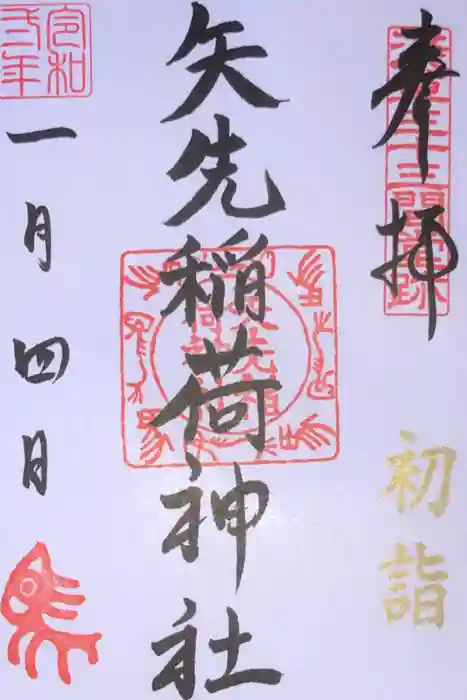 奉拝
初詣
矢先稲荷神社
令和
弐年
一月四日